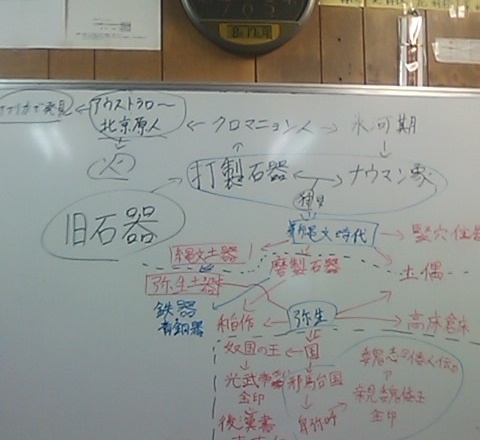 アフリカで発見
アウストラロ〜
北京原人
クロマニョン人
氷河期
火
打製石器
ナウマン象
旧石器
縄文時代
竪穴住居
縄文土器
磨製石器
土偶
弥生土器
鉄器
青銅器
稲作
弥生
高床倉庫
奴国の王
国
光武帝
金印
邪馬台国
魏志の倭人伝
親魏倭王
金印
後漢書
卑弥呼